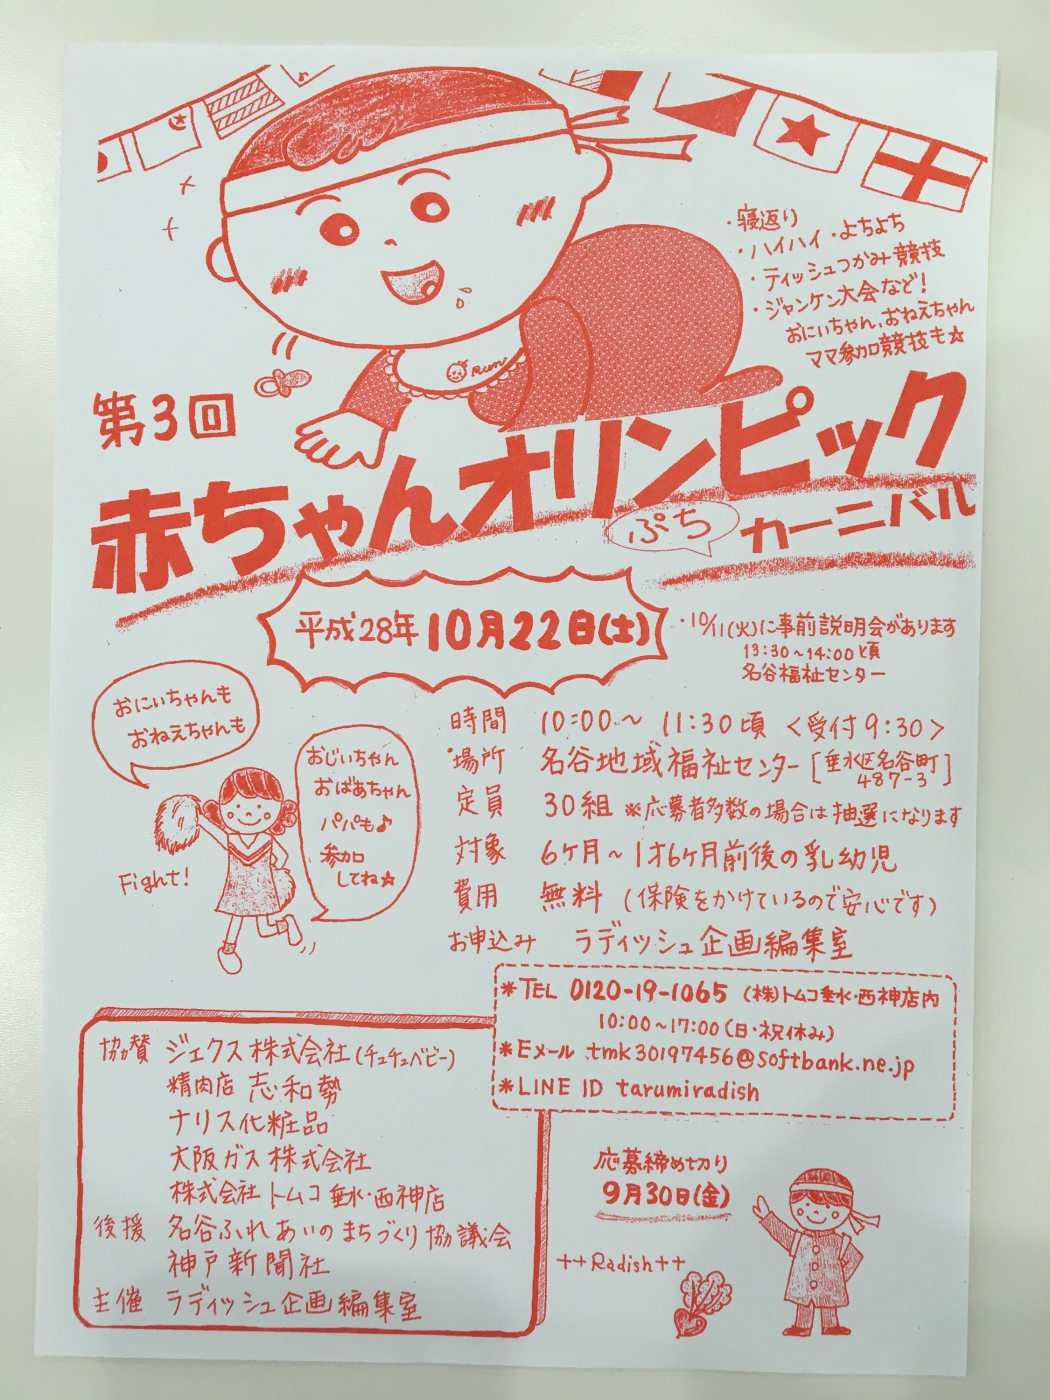 ・寝返り
・ハイハイ・よちよち
・ティッシュつかみ競技
・ジャンケン大会など!
おにいちゃん、おねえちゃん
ママ参加競技も☆
Rum
第3回
赤ちゃんオリンピック
ぷち カーニバル
平成28年 10月22日(土)
・10/11(火)に事前説明会があります
13:30~14:00頃
名谷福祉センター
おにいちゃんも
おねえちゃんも
おじいちゃん
おばあちゃん
パパも♪
参加
してね☆
Fight!
時間 10:00~11:30頃 <受付9:30>
場所 名谷地域福祉センター [垂水区名谷町487-3]
定員 30組 ※応募者多数の場合は抽選になります
対象 6ヶ月~1才6ヶ月前後の乳幼児
費用 無料 (保険をかけているので安心です)
お申込み ラディッシュ企画編集室
*TEL 0120-19-1065 (株)トムコ垂水・西神店内
10:00~17:00(日・祝休み)
*Eメール tmk30197456@softbank.ne.jp
*LINE ID tarumiradish
協賛 ジェクス株式会社(チュチュベビー)
精肉店 志和勢
ナリス化粧品
大阪ガス株式会社
株式会社トムコ垂水・西神店
後援 名谷ふれあいのまちづくり協議会
神戸新聞社
主催 ラディッシュ企画編集室
応募締め切り
9月30日(金)
++Radish++